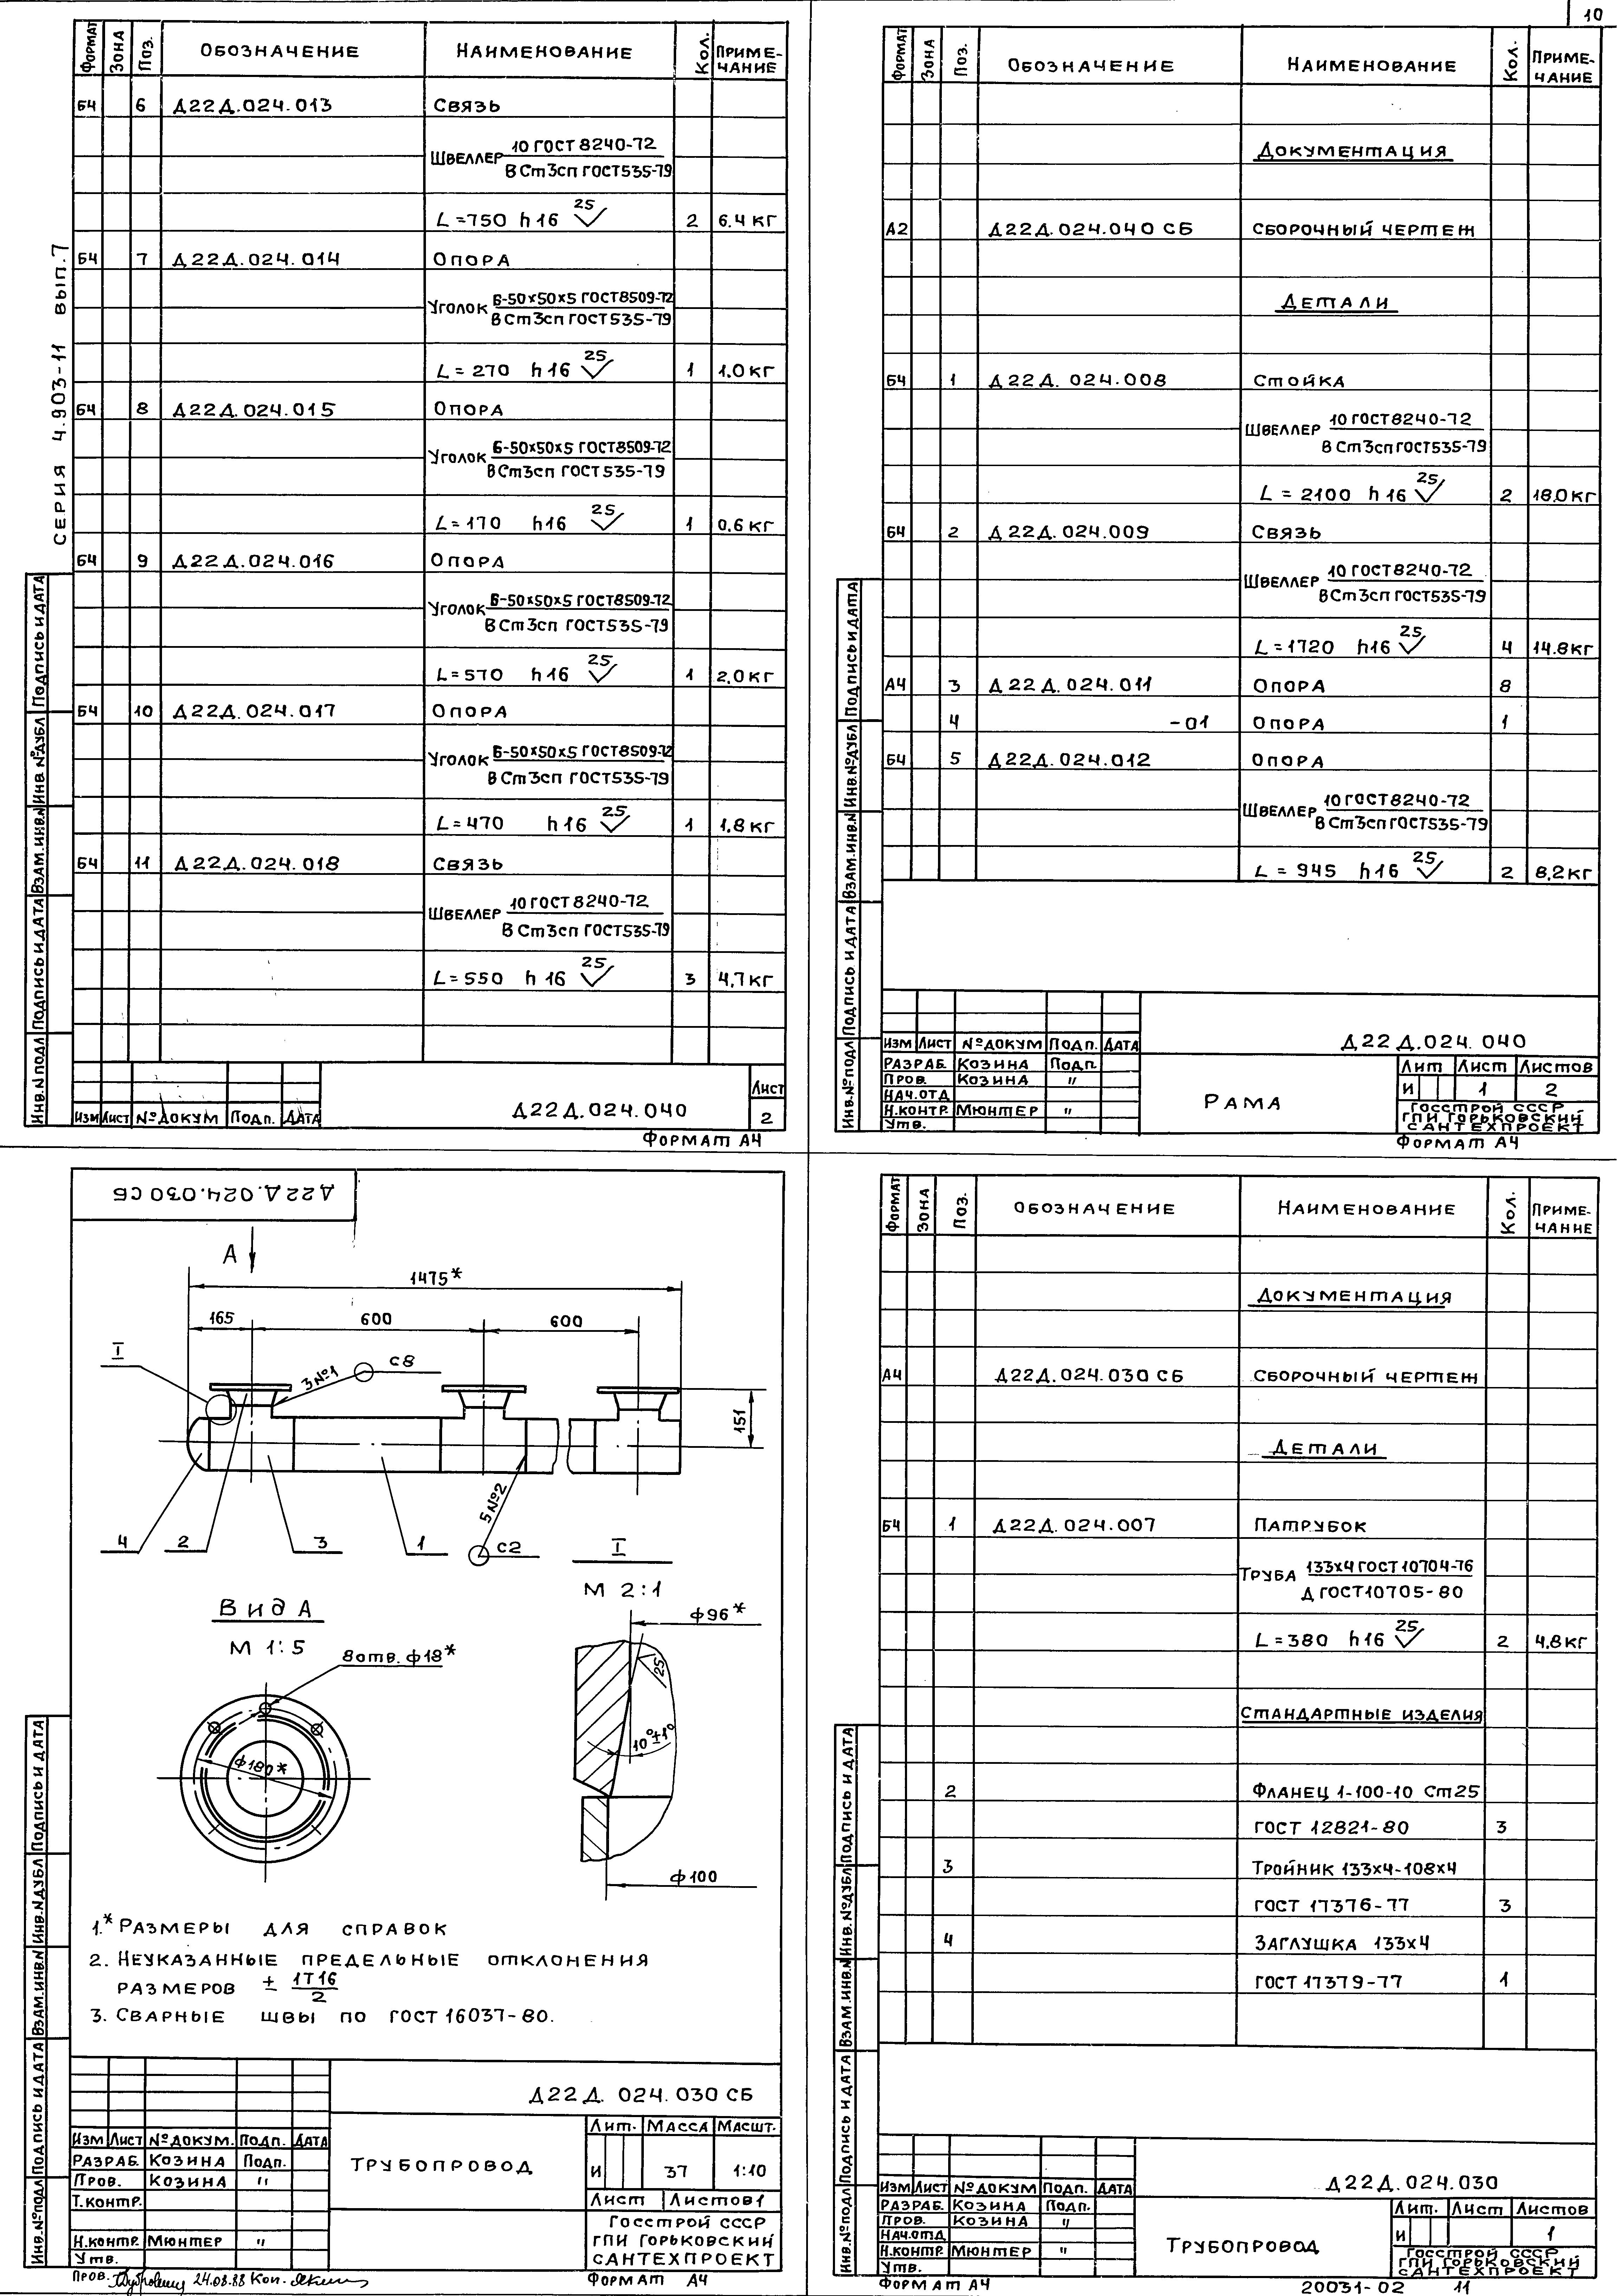 10
СЕРИЯ 4.903-11 ВЫП.7
ФОРМАТ ЗОНА ПОЗ. ОБОЗНАЧЕНИЕ НАИМЕНОВАНИЕ КОЛ. ПРИМЕ-ЧАНИЕ
Б4 6 Д22Д.024.013 СВЯЗЬ
ШВЕЛЛЕР 10 ГОСТ 8240-72
ВСт3сп ГОСТ535-79
L=750 h16 25 2 6.4 КГ
Б4 7 Д22Д.024.014 ОПОРА
УГОЛОК Б-50х50х5 ГОСТ8509-72
ВСт3сп ГОСТ535-79
L=270 h16 25 1 1.0 КГ
Б4 8 Д22Д.024.015 ОПОРА
УГОЛОК Б-50х50х5 ГОСТ8509-72
ВСт3сп ГОСТ535-79
L=170 h16 25 1 0.6 КГ
Б4 9 Д22Д.024.016 ОПОРА
УГОЛОК Б-50х50х5 ГОСТ8509-72
ВСт3сп ГОСТ535-79
L=570 h16 25 1 2.0 КГ
Б4 10 Д22Д.024.017 ОПОРА
УГОЛОК Б-50х50х5 ГОСТ8509-72
ВСт3сп ГОСТ535-79
L=470 h16 25 1 1.8 КГ
Б4 11 Д22Д.024.018 СВЯЗЬ
ШВЕЛЛЕР 10 ГОСТ 8240-72
ВСт3сп ГОСТ535-79
L=550 h16 25 3 4,7 КГ
ИНВ.№ПОДЛ ПОДПИСЬ И ДАТА ВЗАМ.ИНВ.№ ИНВ.№ДУБЛ ПОДПИСЬ И ДАТА
ИЗМ ЛИСТ №ДОКУМ ПОДП. ДАТА
Д22Д.024.040
ЛИСТ
2
ФОРМАТ А4
ФОРМАТ ЗОНА ПОЗ. ОБОЗНАЧЕНИЕ НАИМЕНОВАНИЕ КОЛ. ПРИМЕ-ЧАНИЕ
ДОКУМЕНТАЦИЯ
А2 Д22Д.024.040 СБ СБОРОЧНЫЙ ЧЕРТЕЖ
ДЕТАЛИ
Б4 1 Д22Д.024.008 СТОЙКА
ШВЕЛЛЕР 10 ГОСТ8240-72
ВСт3сп ГОСТ535-79
L=2100 h16 25 2 18.0 КГ
Б4 2 Д22Д.024.009 СВЯЗЬ
ШВЕЛЛЕР 10 ГОСТ8240-72
ВСт3сп ГОСТ535-79
L=1720 h16 25 4 14.8 КГ
А4 3 Д22Д.024.011 ОПОРА 8
4 -01 ОПОРА 1
Б4 5 Д22Д.024.012 ОПОРА
ШВЕЛЛЕР 10 ГОСТ8240-72
ВСт3сп ГОСТ535-79
L=945 h16 25 2 8,2 КГ
ИНВ.№ПОДЛ ПОДПИСЬ И ДАТА ВЗАМ.ИНВ.№ ИНВ.№ДУБЛ ПОДПИСЬ И ДАТА
Д22Д.024.040
ИЗМ ЛИСТ №ДОКУМ ПОДП. ДАТА
РАЗРАБ. КОЗИНА ПОДП.
ПРОВ. КОЗИНА "
НАЧ.ОТД
Н.КОНТР. МЮНТЕР "
УТВ.
РАМА
ЛИТ ЛИСТ ЛИСТОВ
И 1 2
ГОССТРОЙ СССР
ГПИ ГОРЬКОВСКИЙ
САНТЕХПРОЕКТ
ФОРМАТ А4
Д22Д.024.030 СБ
А
1475*
165 600 600
I
3 №1
С8
151
5 №2
4 2 3 1
С2
I
М 2:1
Вид А
М 1:5
8 отв. ф18*
ф180*
ф96*
25
10°±1°
ф100
1.* РАЗМЕРЫ ДЛЯ СПРАВОК
2. НЕУКАЗАННЫЕ ПРЕДЕЛЬНЫЕ ОТКЛОНЕНИЯ
РАЗМЕРОВ ± 1Т16/2
3. СВАРНЫЕ ШВЫ ПО ГОСТ 16037-80.
ИНВ.№ПОДЛ ПОДПИСЬ И ДАТА ВЗАМ.ИНВ.№ ИНВ.№ДУБЛ ПОДПИСЬ И ДАТА
Д22Д.024.030 СБ
ИЗМ ЛИСТ №ДОКУМ. ПОДП. ДАТА
РАЗРАБ. КОЗИНА ПОДП.
ПРОВ. КОЗИНА "
Т.КОНТР.
Н.КОНТР. МЮНТЕР "
УТВ.
ТРУБОПРОВОД
ЛИТ. МАССА МАСШТ.
И 37 1:10
ЛИСТ ЛИСТОВ 1
ГОССТРОЙ СССР
ГПИ ГОРЬКОВСКИЙ
САНТЕХПРОЕКТ
ПРОВ. 24.08.88 Коп.
ФОРМАТ А4
ФОРМАТ ЗОНА ПОЗ. ОБОЗНАЧЕНИЕ НАИМЕНОВАНИЕ КОЛ. ПРИМЕ-ЧАНИЕ
ДОКУМЕНТАЦИЯ
А4 Д22Д.024.030 СБ СБОРОЧНЫЙ ЧЕРТЕЖ
ДЕТАЛИ
Б4 1 Д22Д.024.007 ПАТРУБОК
ТРУБА 133х4 ГОСТ10704-76
Д ГОСТ10705-80
L=380 h16 25 2 4,8 КГ
СТАНДАРТНЫЕ ИЗДЕЛИЯ
2 ФЛАНЕЦ 1-100-10 Ст25
ГОСТ 12821-80 3
3 ТРОЙНИК 133х4-108х4
ГОСТ 17376-77 3
4 ЗАГЛУШКА 133х4
ГОСТ 17379-77 1
ИНВ.№ПОДЛ ПОДПИСЬ И ДАТА ВЗАМ.ИНВ.№ ИНВ.№ДУБЛ ПОДПИСЬ И ДАТА
Д22Д.024.030
ИЗМ ЛИСТ №ДОКУМ ПОДП. ДАТА
РАЗРАБ. КОЗИНА ПОДП.
ПРОВ. КОЗИНА "
НАЧ.ОТД
Н.КОНТР. МЮНТЕР "
УТВ.
ТРУБОПРОВОД
ЛИТ. ЛИСТ ЛИСТОВ
И 1
ГОССТРОЙ СССР
ГПИ ГОРЬКОВСКИЙ
САНТЕХПРОЕКТ
ФОРМАТ А4
20031-02 11